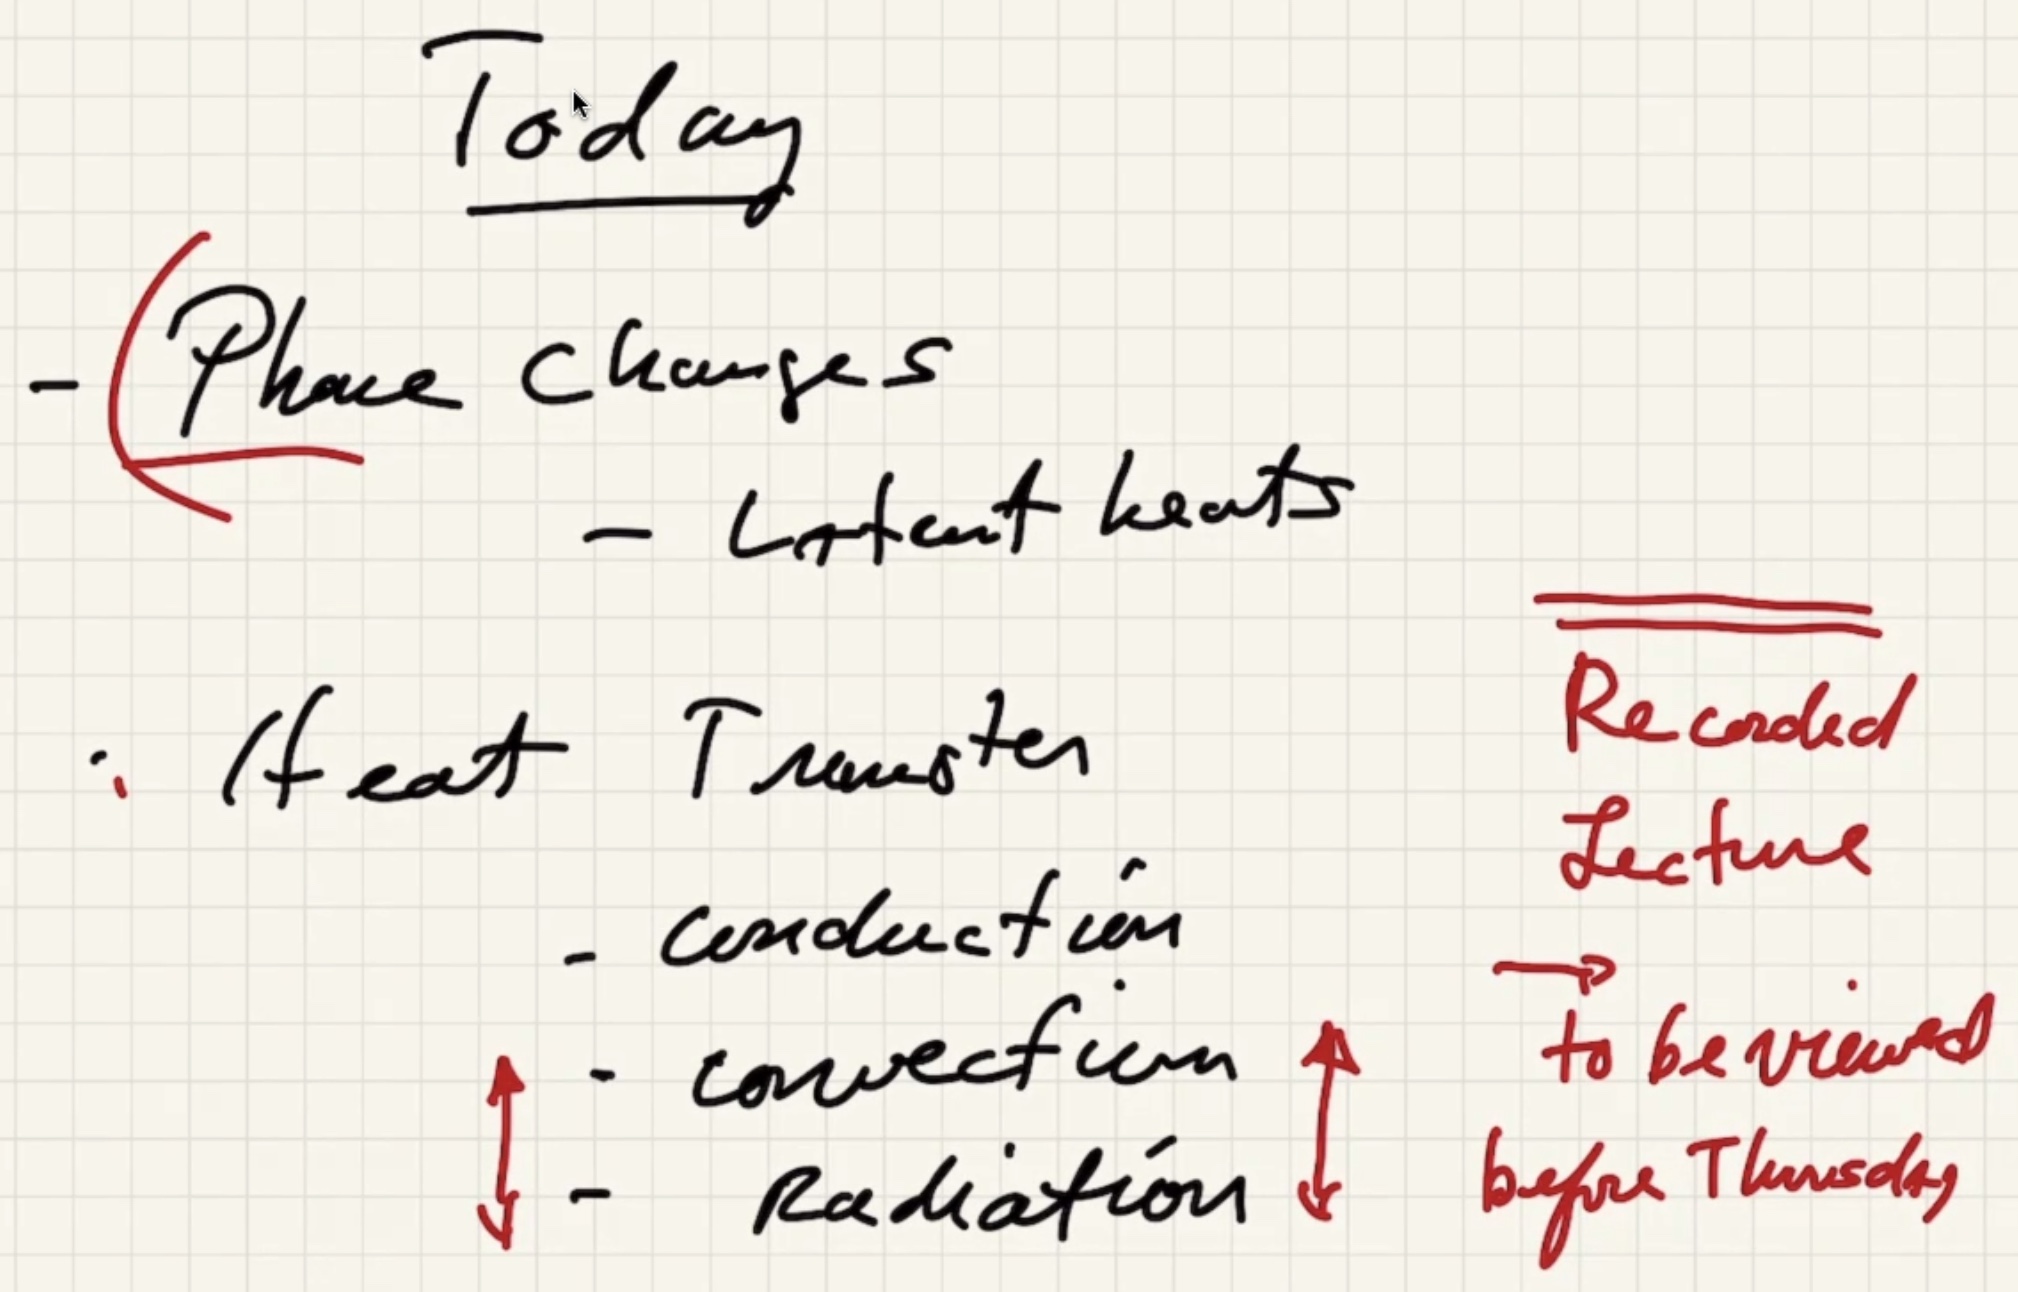 Today
- Phase Changes
- Latent heats
Heat Transfer
- conduction
- convection
- Radiation
Recorded
Lecture
→ to be viewed
before Thursday